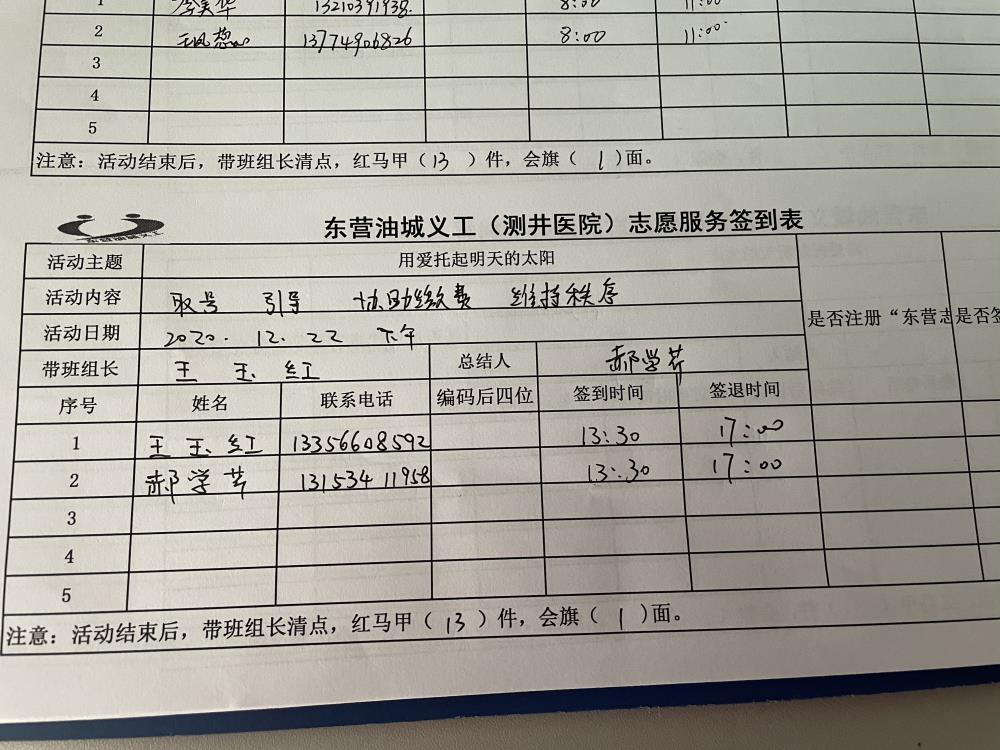 1 李美华 13210391938. 8:00 11:00
2 13774906826 8:00 11:00
3
4
5
注意：活动结束后，带班组长清点，红马甲（13）件，会旗（1）面。
东营油城义工
东营油城义工（测井医院）志愿服务签到表
活动主题 用爱托起明天的太阳
活动内容 取号 引导 协助缴费 维持秩序
是否注册“东营志 是否签
活动日期 2020.12.22 下午
带班组长 王玉红 总结人 郝学芹
序号 姓名 联系电话 编码后四位 签到时间 签退时间
1 王玉红 13356608592 13:30 17:00
2 郝学芹 13153411958 13:30 17:00
3
4
5
注意：活动结束后，带班组长清点，红马甲（13）件，会旗（1）面。